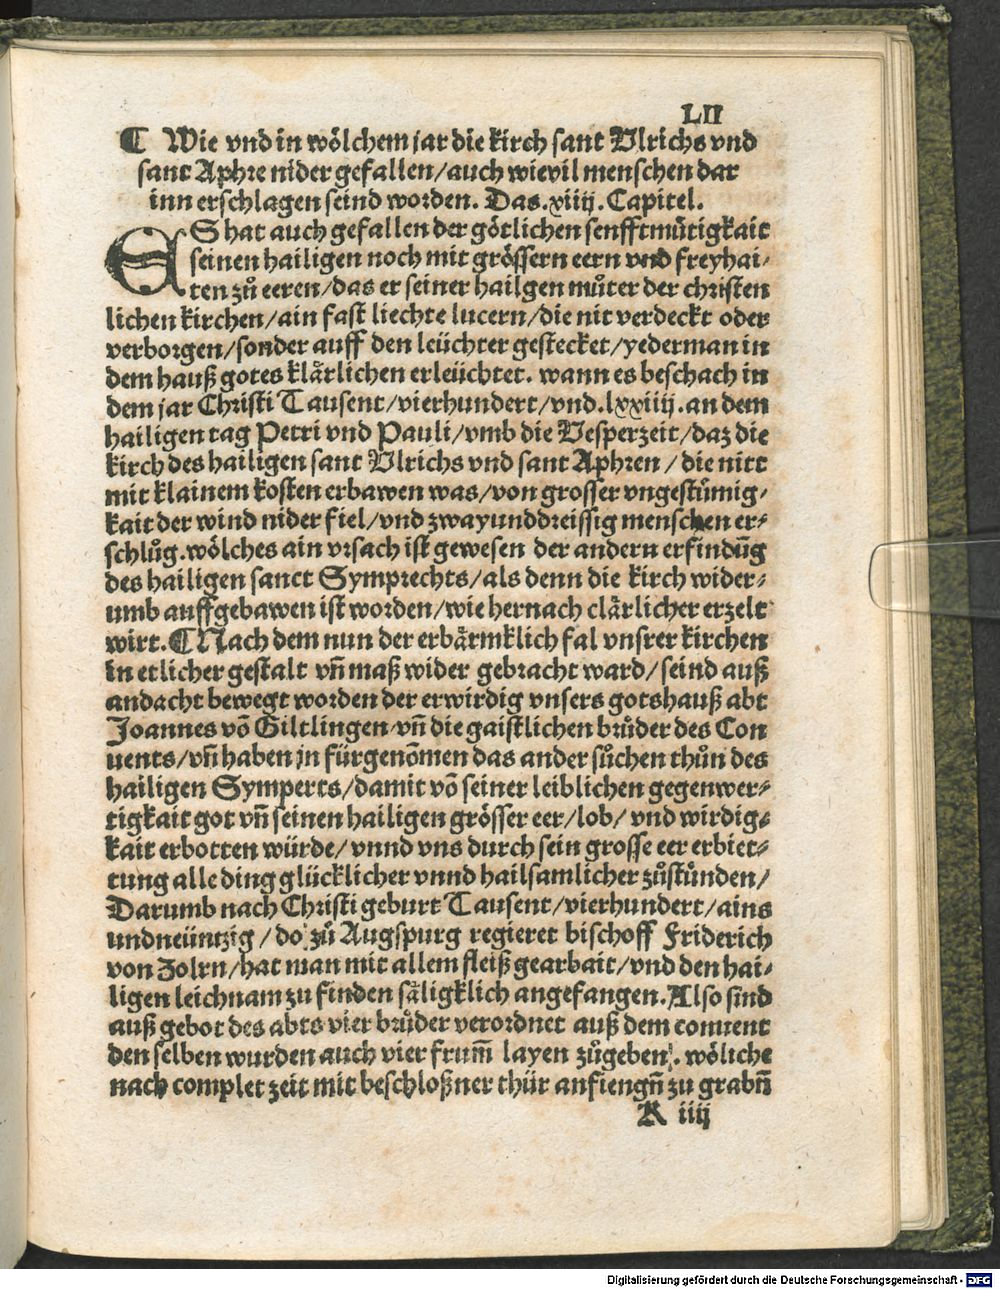 LII
¶ Wie vnd in wölchem jar die kirch sant Vlrichs vnd
sant Aphre nider gefallen/auch wievil menschen dar
inn erschlagen seind worden. Das .xiiij. Capitel.
ES hat auch gefallen der götlichen senfftmůtigkait
seinen hailigen noch mit grössern eern vnd freyhai-
ten zů eeren/das er seiner hailgen můter der christen
lichen kirchen/ain fast liechte lucern/die nit verdeckt oder
verborgen/sonder auff den leüchter gestecket/yederman in
dem hauß gotes klärlichen erleüchtet. wann es beschach in
dem jar Christi Tausent/vierhundert/vnd .lxxiiij. an dem
hailigen tag Petri vnd Pauli/vmb die Vesperzeit/daz die
kirch des hailigen sant Vlrichs vnd sant Aphren/die nitt
mit klainem kosten erbawen was/von grosser vngestümig-
kait der wind nider fiel/vnd zwayunddreissig menschen er-
schlůg. wölches ain vrsach ist gewesen der andern erfindūg
des hailigen sanct Symprechts/als denn die kirch wider-
umb auffgebawen ist worden/wie hernach clärlicher erzelt
wirt. ¶ Nach dem nun der erbärmklich fal vnsrer kirchen
in etlicher gestalt vn̄ maß wider gebracht ward/seind auß
andacht bewegt worden der erwirdig vnsers gotshauß abt
Joannes vō Giltlingen vn̄ die gaistlichen brůder des Con
uents/vn̄ haben jn fürgenōmen das ander sůchen thůn des
hailigen Symperts/damit vō seiner leiblichen gegenwer-
tigkait got vn̄ seinen hailigen grösser eer/lob/vnd wirdig-
kait erbotten würde/vnnd vns durch sein grosse eer erbiet-
tung alle ding glücklicher vnnd hailsamlicher zůstünden/
Darumb nach Christi geburt Tausent/vierhundert/ains
undneüntzig/do zů Augspurg regieret bischoff Friderich
von Zolrn/hat man mit allem fleiß gearbait/vnd den hai-
ligen leichnam zu finden säligklich angefangen. Also sind
auß gebot des abts vier brůder verordnet auß dem conuent
den selben wurden auch vier frum̄ layen zůgeben. wöliche
nach complet zeit mit beschloßner thür anfiengn̄ zu grabn̄
K iiij
Digitalisierung gefördert durch die Deutsche Forschungsgemeinschaft - DFG